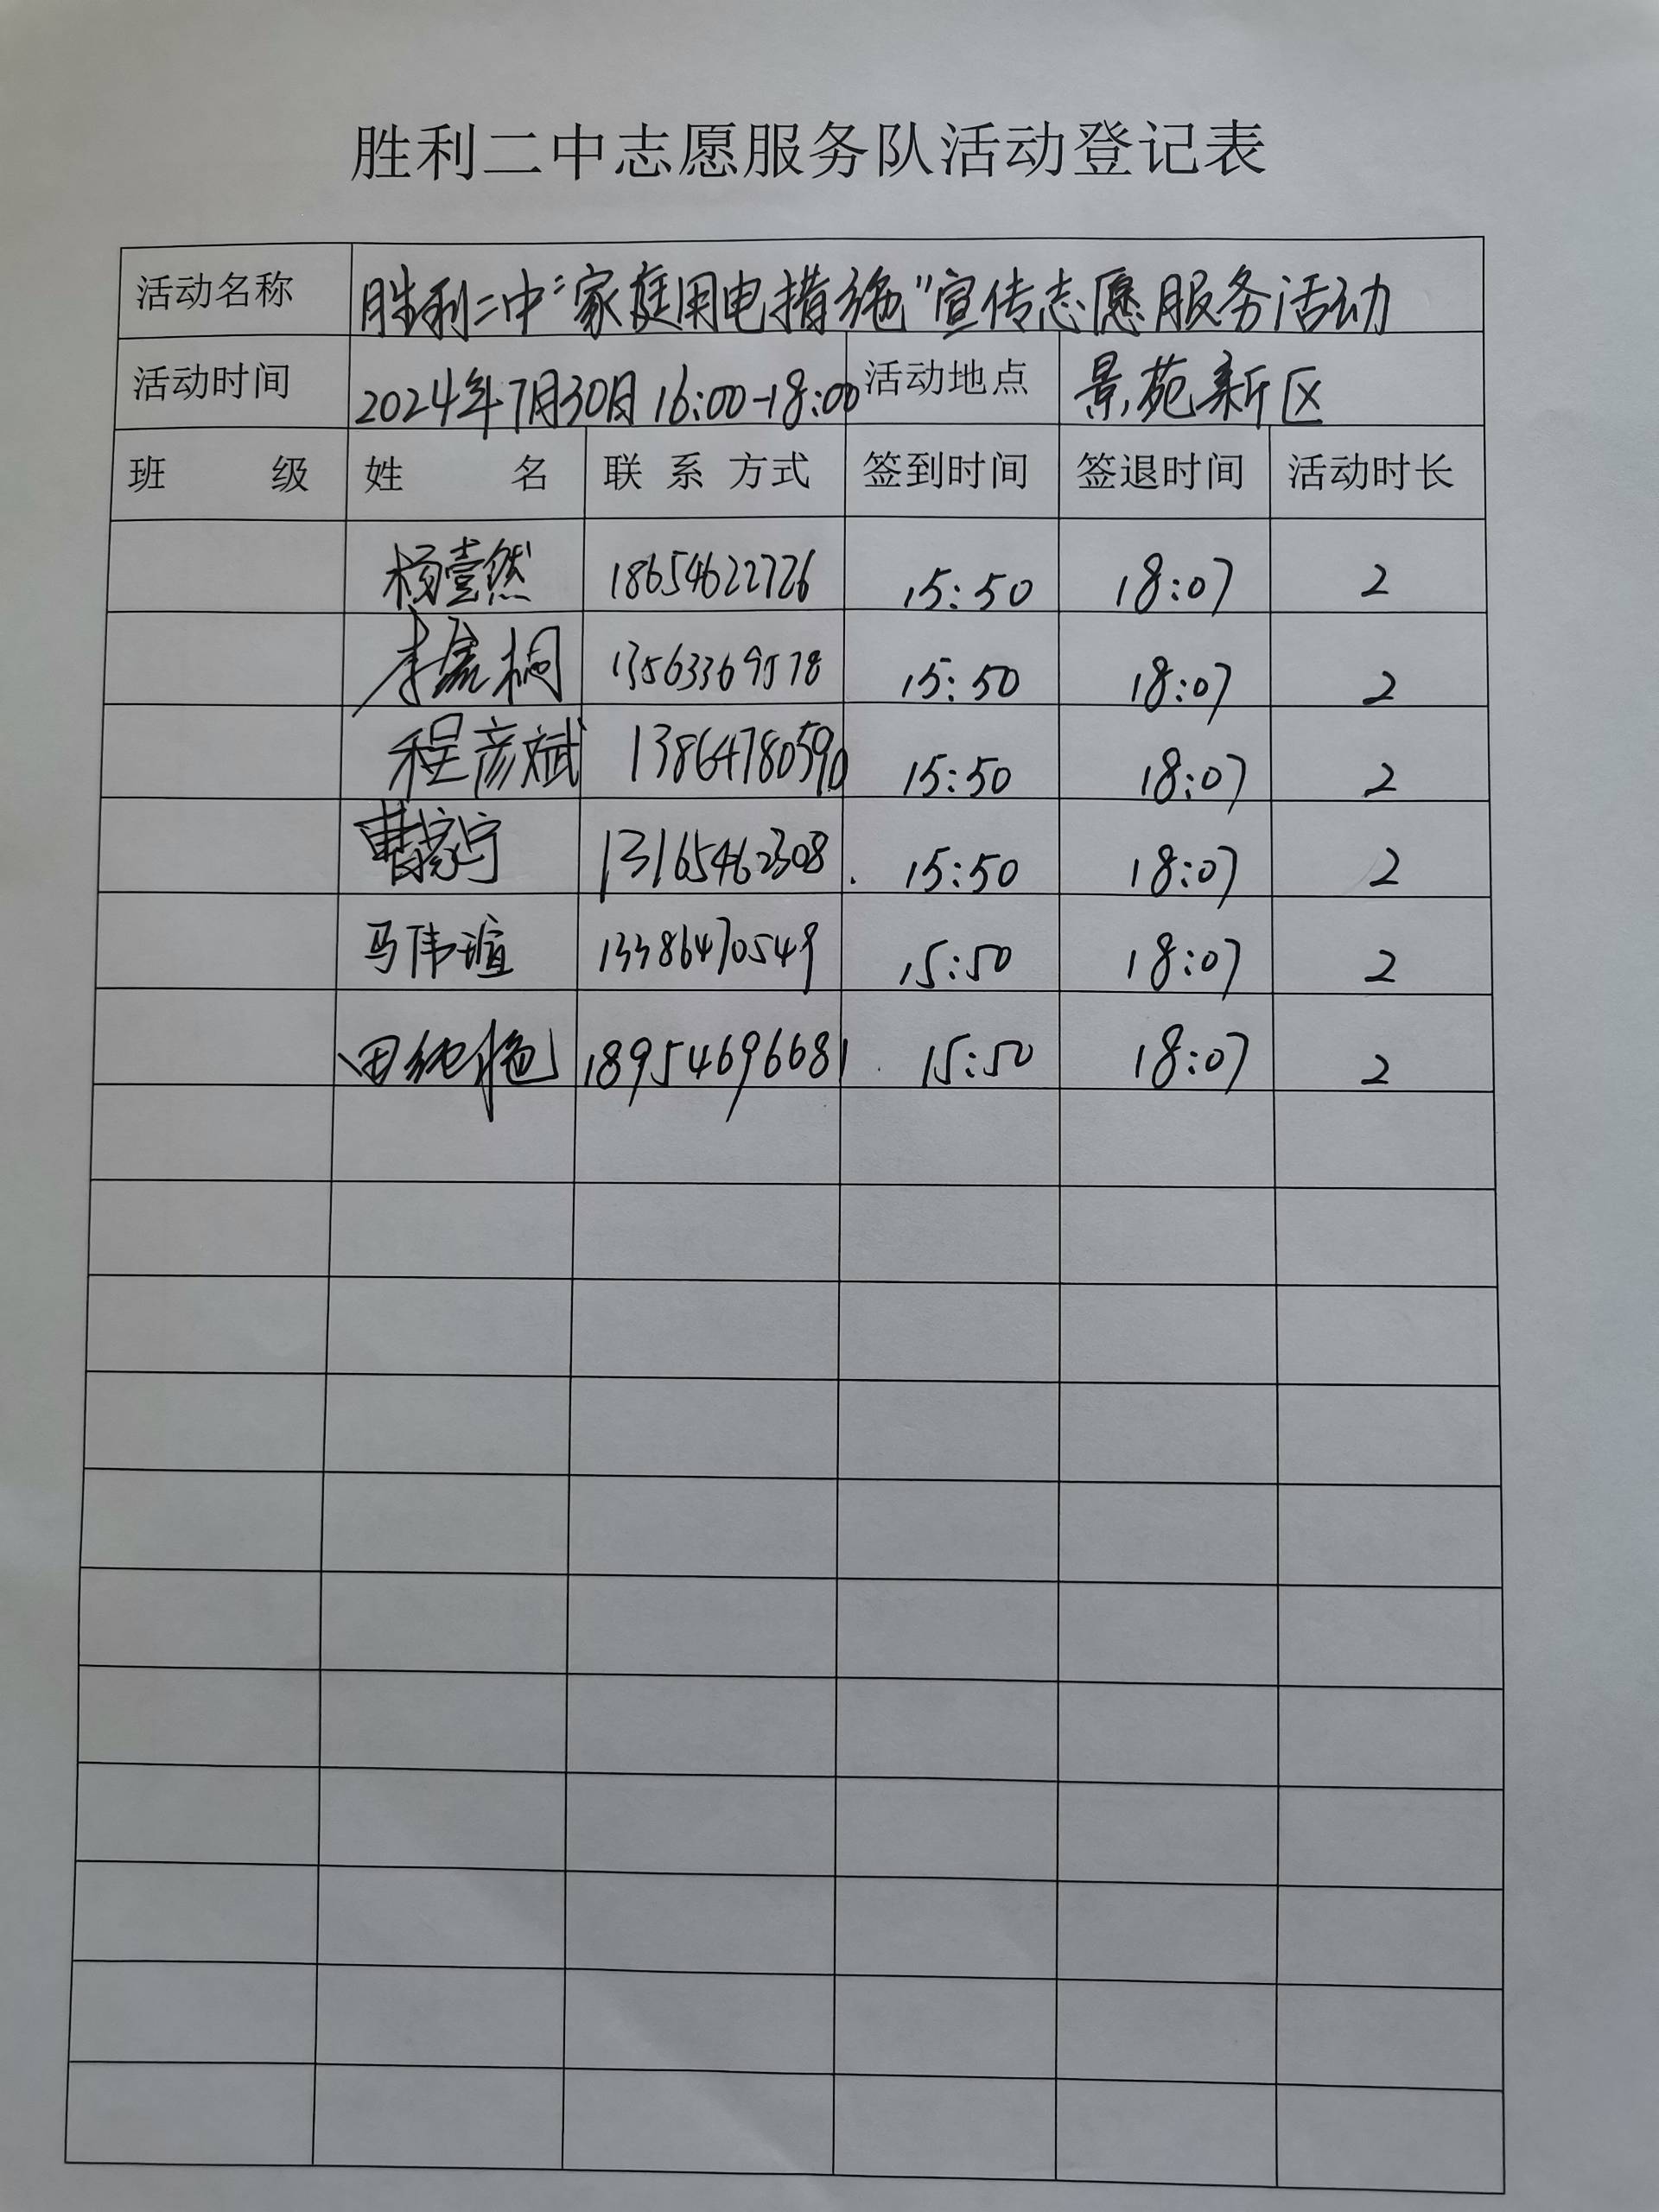 胜利二中志愿服务队活动登记表
活动名称 胜利二中“家庭用电措施”宣传志愿服务活动
活动时间 2024年7月30日 16:00-18:00 活动地点 景苑新区
班 级 姓 名 联 系 方式 签到时间 签退时间 活动时长
杨壹然 18654622726 15:50 18:07 2
李 桐 13563369578 15:50 18:07 2
程彦斌 13864780590 15:50 18:07 2
曹家宁 13165462308 15:50 18:07 2
马伟瑄 13386470549 15:50 18:07 2
田纯 18954696681 15:50 18:07 2